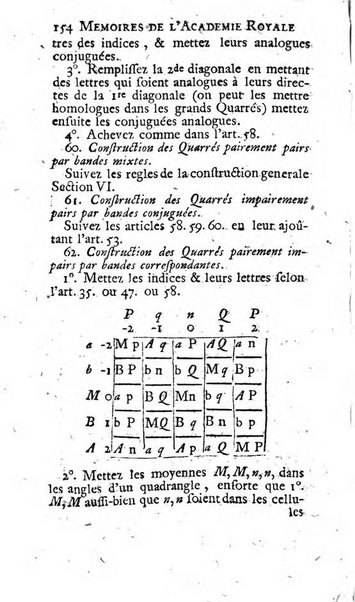 154 MEMOIRES DE L'ACADEMIE ROYALE
tres des indices, & mettez leurs analogues
conjuguées.
3°. Remplissez la 2de diagonale en mettant
des lettres qui soient analogues à leurs direc-
tes de la 1re diagonale (on peut les mettre
homologues dans les grands Quarrés) mettez
ensuite les conjuguées analogues.
4°. Achevez comme dans l'art. 58.
60. Construction des Quarrés pairement pairs
par bandes mixtes.
Suivez les regles de la construction generale
Section VI.
61. Construction des Quarrés impairement
pairs par bandes conjuguées.
Suivez les articles 58. 59. 60. en leur ajoû-
tant l'art. 53.
62. Construction des Quarrés pairement im-
pairs par bandes correspondantes.
1°. Mettez les indices & leurs lettres selon
l'art. 35. ou 47. ou 58.
P q n Q P
-2 -1 0 1 2
a -2 M p A q a P A Q a n
b -1 B P b n b Q M q B p
M 0 a p B Q Mn b q A P
B 1 b P MQ B q B n b p
A 2 A n a q A p a Q M P
2°. Mettez les moyennes M, M, n, n, dans
les angles d'un quadrangle, ensorte que 1°.
M, M aussi-bien que n, n soient dans les cellu-
les